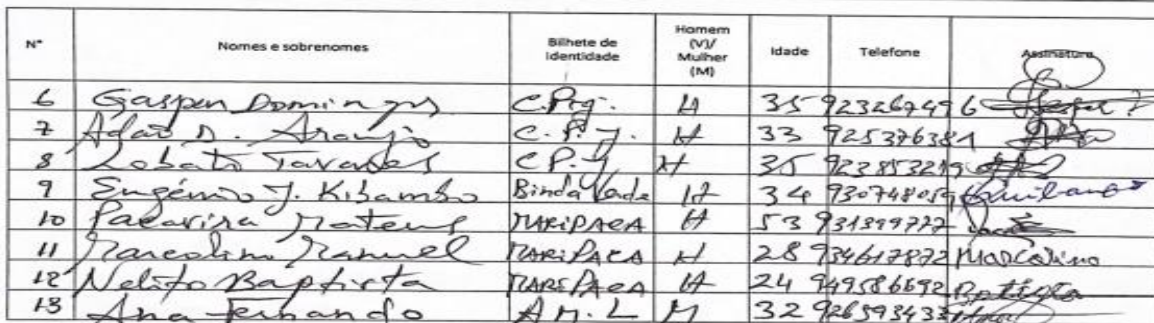 N° Nomes e sobrenomes Bilhete de Identidade Homem (V)/ Mulher (M) Idade Telefone Assinatura
6 Gaspen Domingos C.Prg. H 35 923267496
7 Adão D. Araujo C.P.y. H 33 925376381
8 Lobato Tavares C.P.y H 35 923853219
9 Eugénio J. Kibambo Binda Verde H 34 930748059
10 Pacavira Mateus MARIPACA H 53 931399777
11 Marcolino Manuel MARIPACA H 28 934617872 Marcolino
12 Nelito Baptista MARIPACA H 24 949586692 Batista
13 Ana Fernando A M. L M 32 926593433